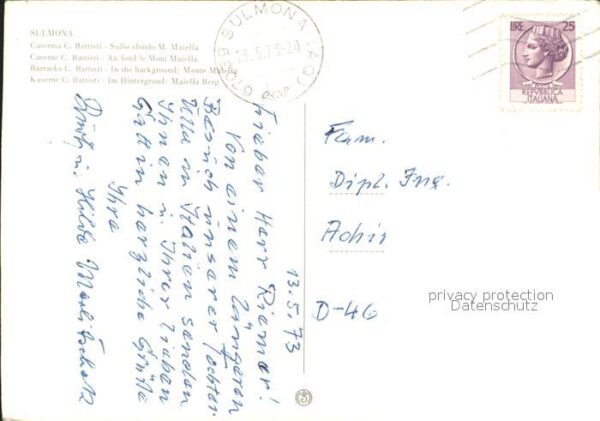 SULMONA
Caserma C. Battisti - Sullo sfondo M. Maiella
Caserne C. Battisti - Au fond le Mont Maiella
Barracks C. Battisti - In the background: Monte Maiella
Kaserne C. Battisti - Im Hintergrund: Maiella Berg
67039 SULMONA (AQ)
13.5.73-20
LIRE 25
REPUBBLICA
ITALIANA
13.5.73
Lieber Herr Riemer!
Von einem längeren
Besuch unserer Tochter
Ulla in Italien senden
Ihnen u. Ihrer lieben
Gattin herzliche Grüße
Ihre
u. Hilde
Fam.
Dipl. Ing.
D-46
privacy protection
Datenschutz